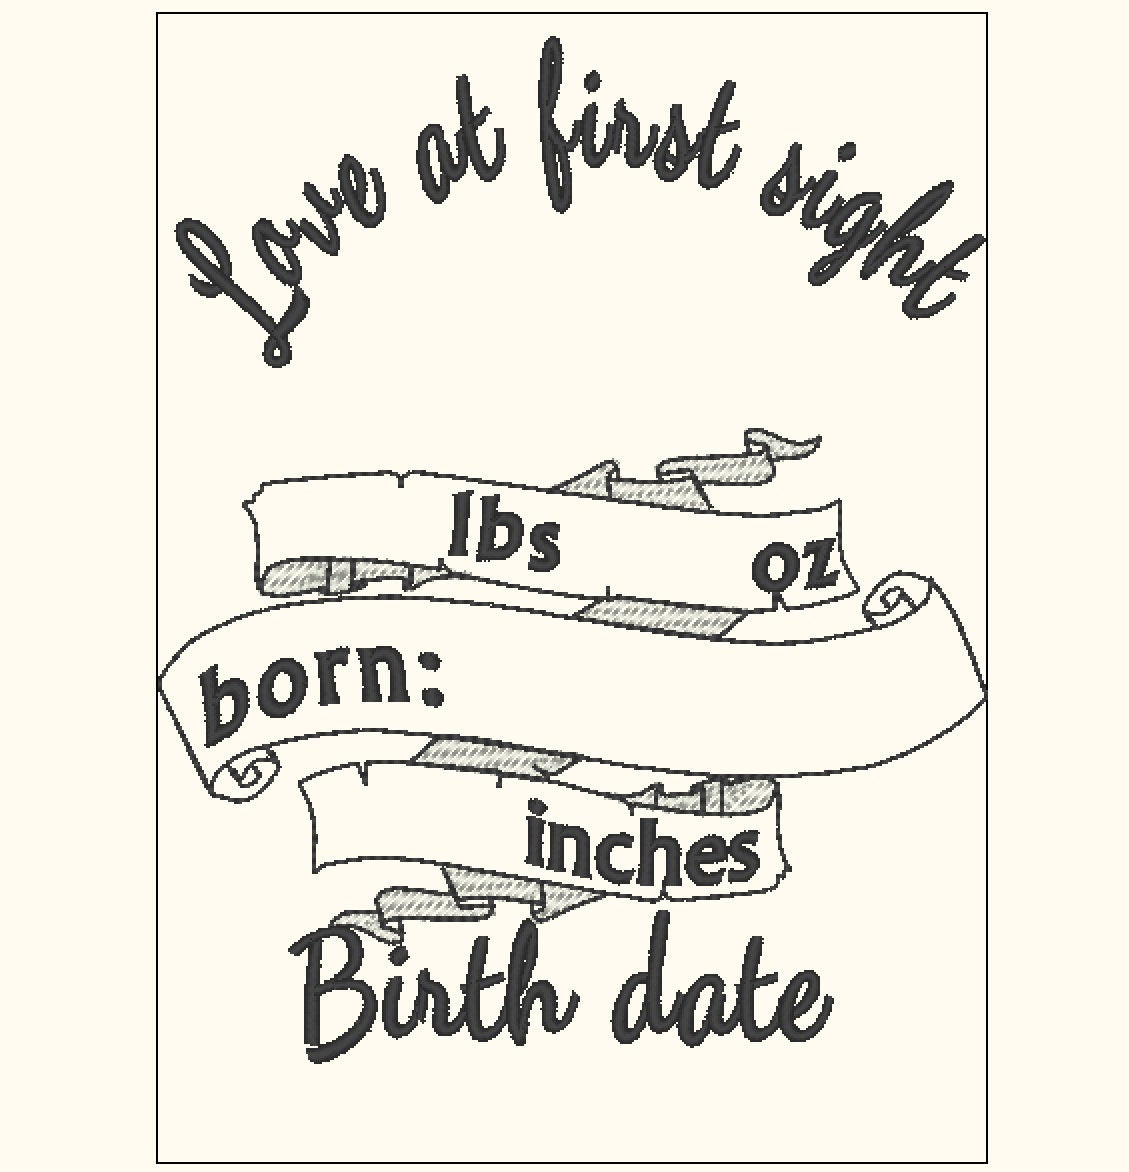 Love at first sight
lbs oz
born:
inches
Birth date